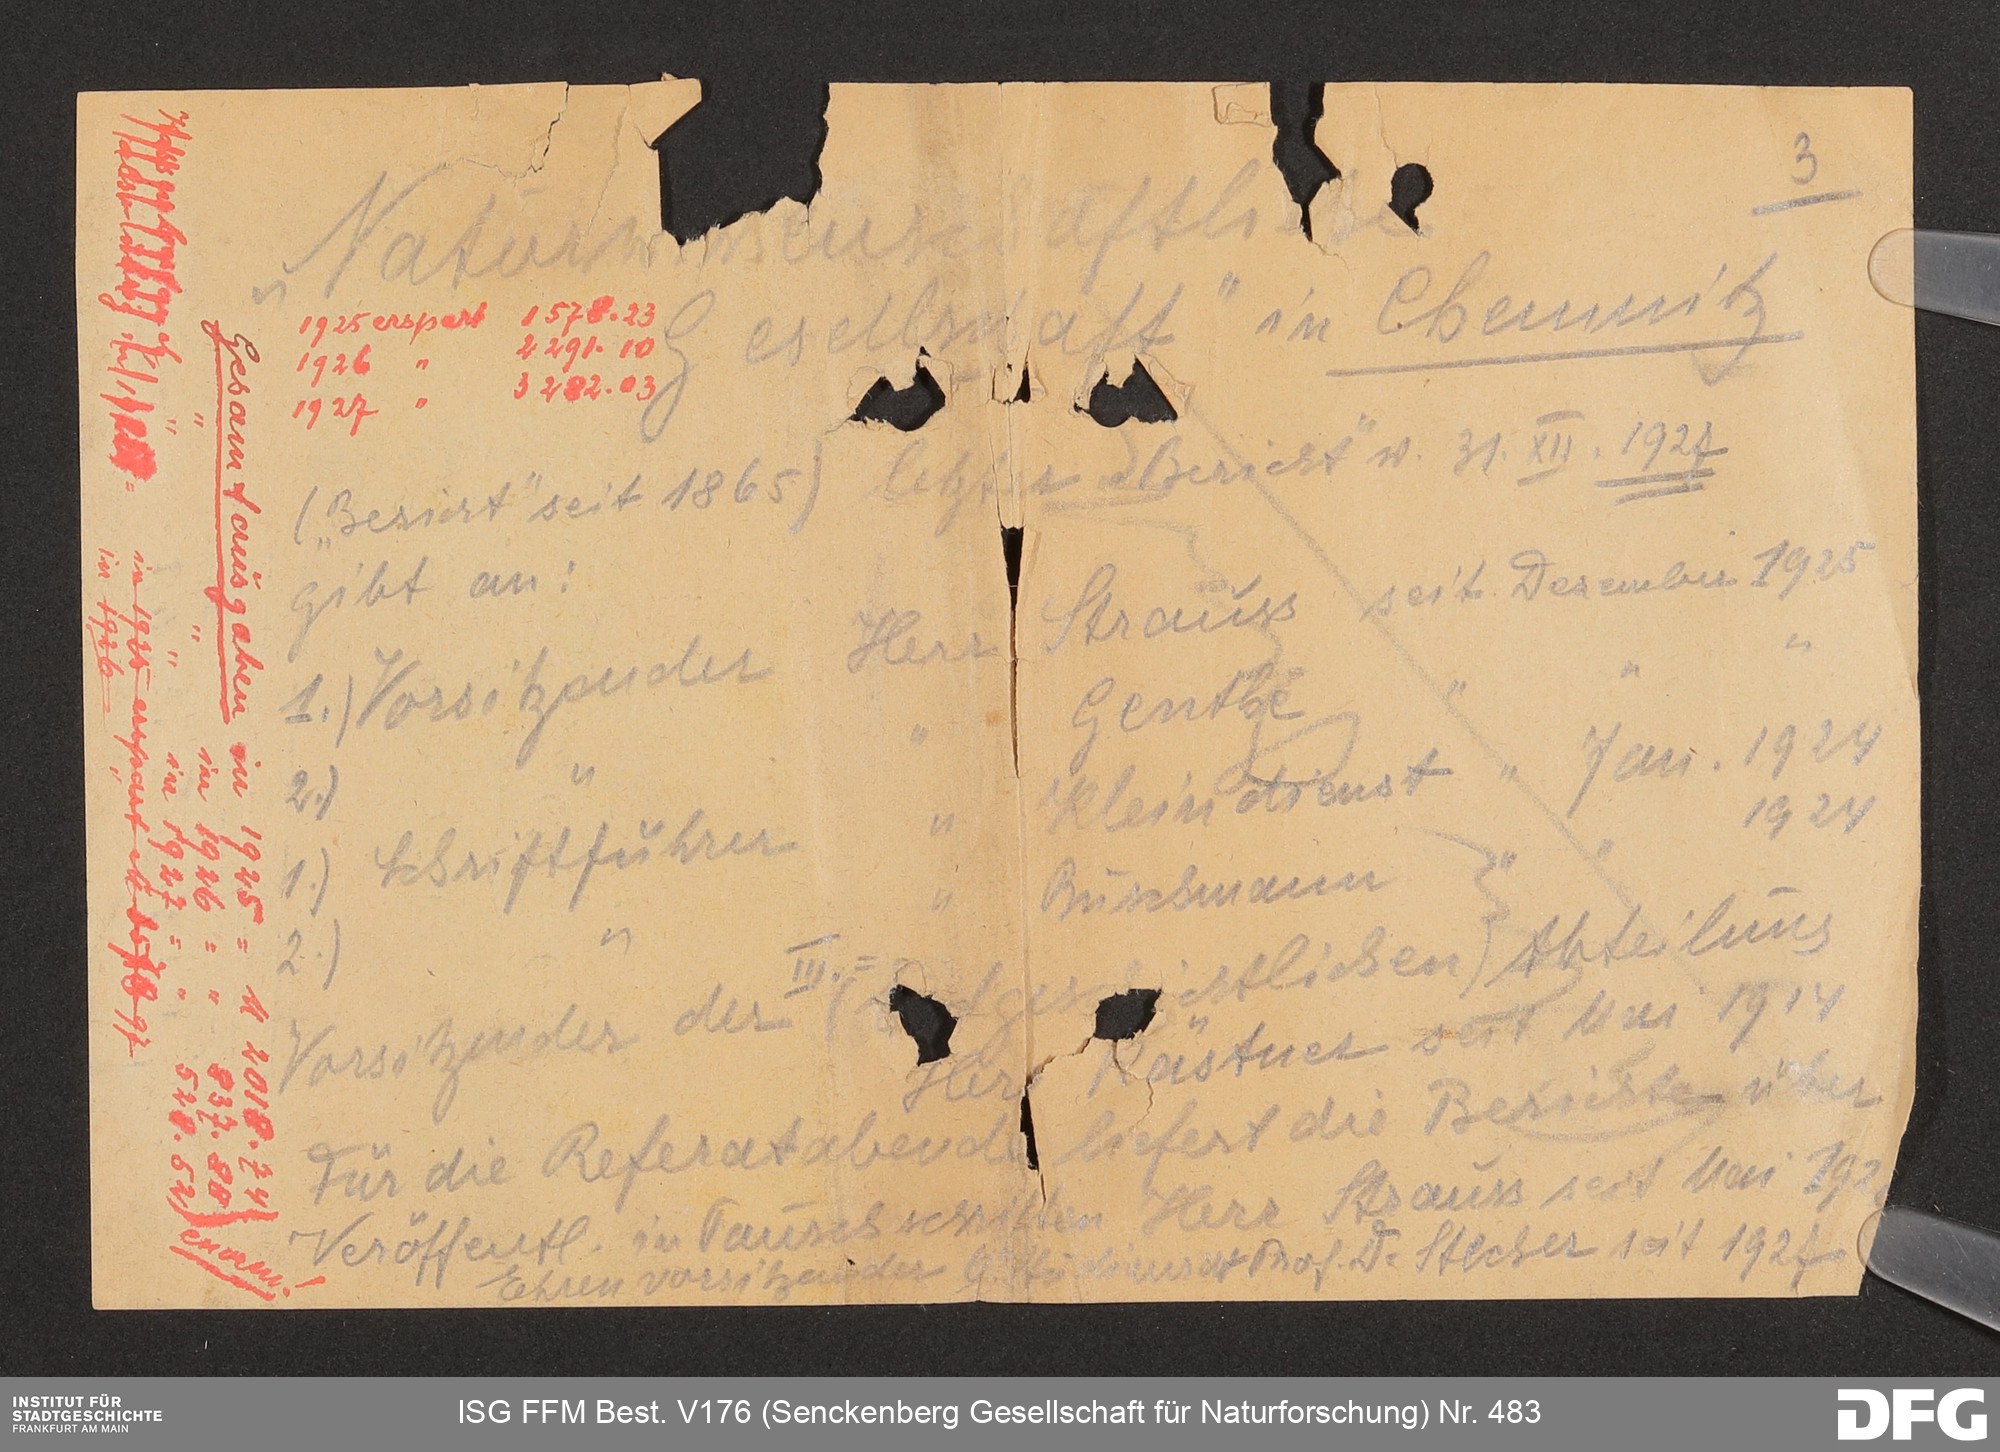 3
"Naturwissenschaftliche
Gesellschaft" in Chemnitz
1925 erspart 1578.23
1926 " 2291.10
1927 " 3282.03
("Bericht" seit 1865) letzter "Bericht" v. 31. XII. 1927
gibt an:
1.) Vorsitzender Herr Strauss seit Dezember 1925
2.) " " Genthe " " "
1.) Schriftführer " Kleindienst " Jan. 1924
2.) " " Buschmann " " 1924
Vorsitzender der III. = (erdgeschichtlichen) Abteilung
Herr Kästner seit Mai 1914
Für die Referatabende liefert die Berichte über
Veröffentl. in Tauschschriften Herr Strauss seit Mai 192
Ehrenvorsitzender Prof. Dr. Stecher seit 1927
Gesamtausgaben in 1925 = M 2018.74
" " in 1926 = " 837.88
" " in 1927 = " 528.52
in 1925 erspart
in 1926
INSTITUT FÜR
STADTGESCHICHTE
FRANKFURT AM MAIN
ISG FFM Best. V176 (Senckenberg Gesellschaft für Naturforschung) Nr. 483
DFG